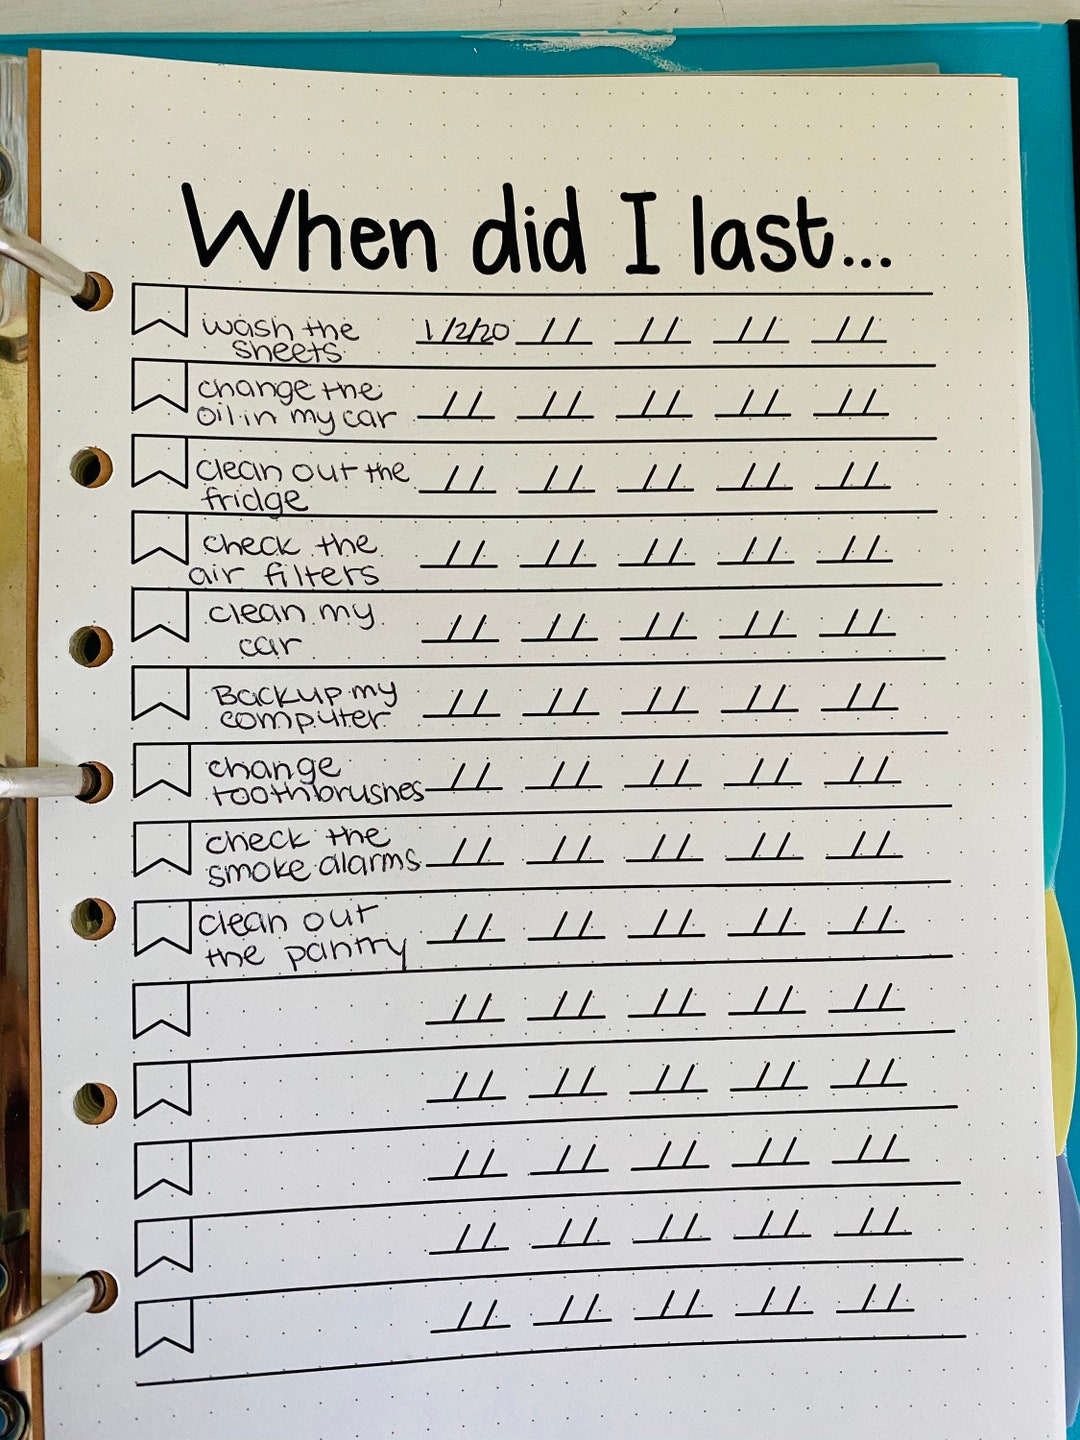 When did I last...
wash the
sheets
1/2/20 / / / / / / / /
change the
oil in my car
/ / / / / / / / / /
clean out the
fridge
/ / / / / / / / / /
check the
air filters
/ / / / / / / / / /
clean my
car
/ / / / / / / / / /
Backup my
computer
/ / / / / / / / / /
change
toothbrushes
/ / / / / / / / / /
check the
smoke alarms
/ / / / / / / / / /
clean out
the pantry
/ / / / / / / / / /
/ / / / / / / / / /
/ / / / / / / / / /
/ / / / / / / / / /
/ / / / / / / / / /
/ / / / / / / / / /